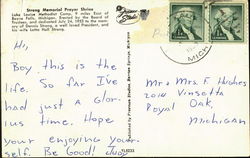 Strong Memorial Prayer Shrine
Lake Louise Methodist Camp, 9 miles East of
Boyne Falls, Michigan. Erected by the Board of
Trustees, and dedicated July 24, 1952 to the memory
of Dennis Strong, a well loved President, and
his wife Lotta Hall Strong.
Hi,
Boy, this is the
life. So far I've
had just a glor-
ius time. Hope
your enjoying your-
self. Be Good! Judy
MICH
Mr & Mrs F Hughes
2014 Vinsetta
Royal Oak,
Michigan